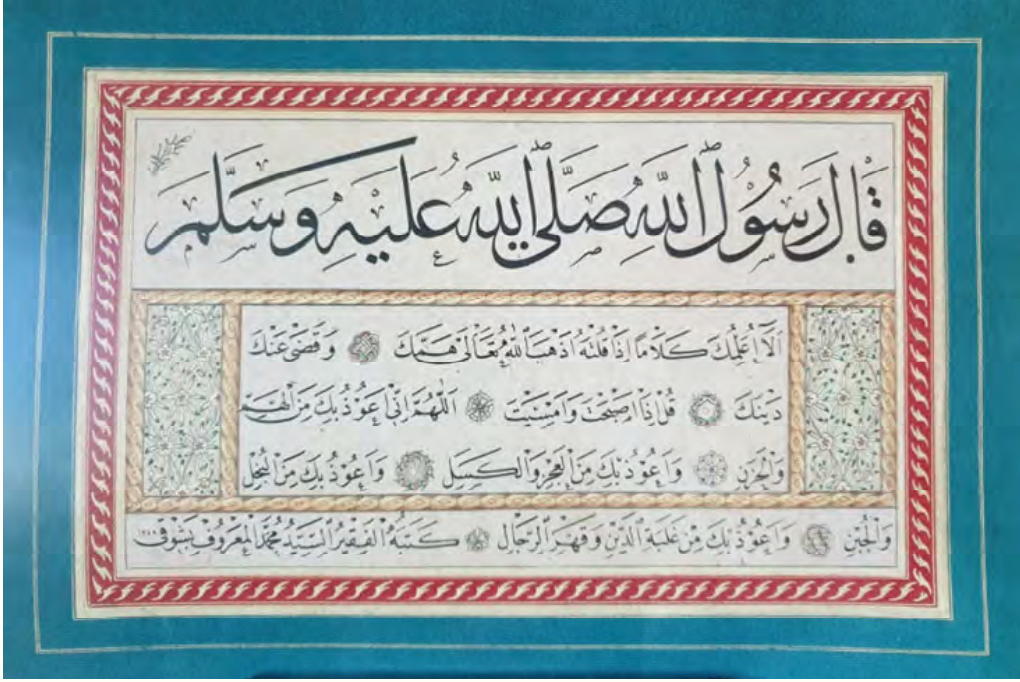 قَالَ رَسُولُ اللهِ صَلَّى اللهُ عَلَيْهِ وَسَلَّمَ
اَلَا اُعَلِّمُكَ كَلَامًا اِذَا قُلْتَهُ اَذْهَبَ اللّٰهُ تَعَالٰى هَمَّكَ وَقَضٰى عَنْكَ
دَيْنَكَ قُلْ اِذَا اَصْبَحْتَ وَاَمْسَيْتَ اَللّٰهُمَّ اِنِّى اَعُوْذُ بِكَ مِنَ الْهَمِّ
وَالْحَزَنِ وَاَعُوْذُ بِكَ مِنَ الْعَجْزِ وَالْكَسَلِ وَاَعُوْذُ بِكَ مِنَ الْبُخْلِ
وَالْجُبْنِ وَاَعُوْذُ بِكَ مِنْ غَلَبَةِ الدَّيْنِ وَقَهْرِ الرِّجَالِ كَتَبَهُ الْفَقِيْرُ السَّيِّدُ مُحَمَّدُ الْمَعْرُوْفُ بِشَوْقِى